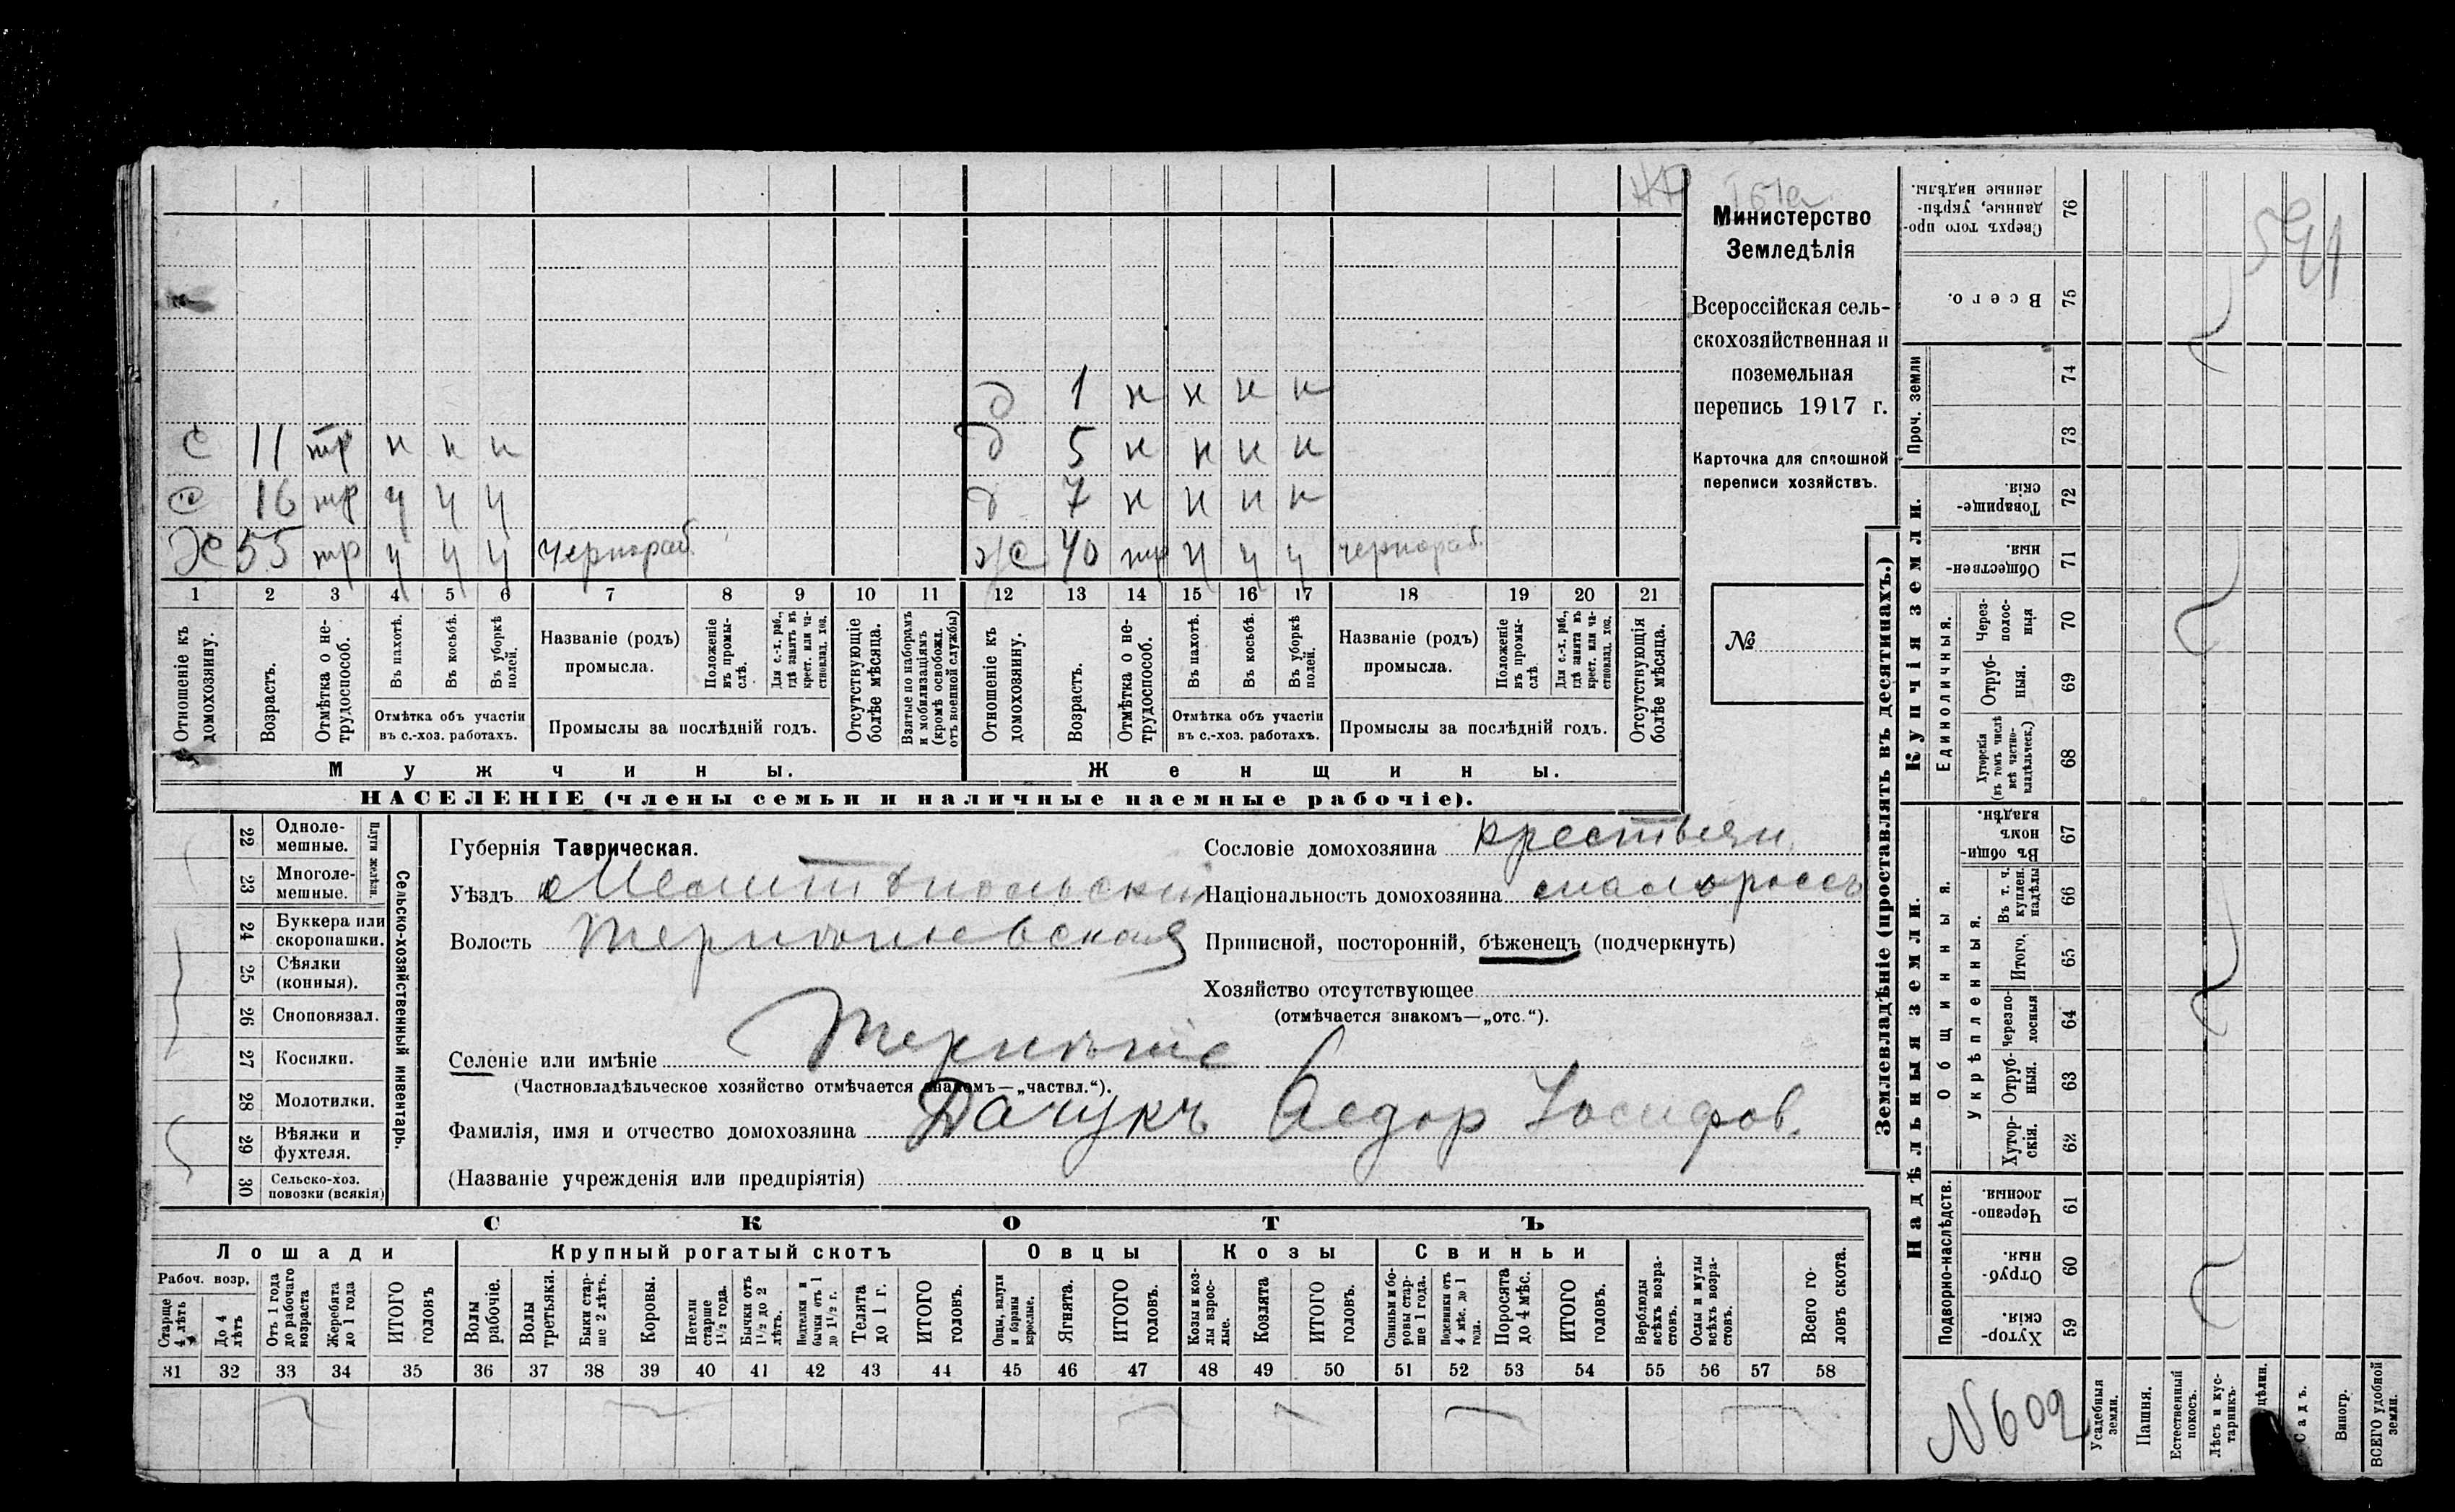 541
Министерство
Земледѣлія
Всероссійская сель-
скохозяйственная и
поземельная
перепись 1917 г.
Карточка для сплошной
переписи хозяйствъ.
№
д 1 н н н н
с 11 тр н н н д 5 н н н н
с 16 тр ч ч ч д 7 н н н н
Х 55 тр ч ч ч чернораб. ж 40 тр ч ч ч чернораб.
1 2 3 4 5 6 7 8 9 10 11 12 13 14 15 16 17 18 19 20 21
Отношеніе къ домохозяину.
Возрастъ.
Отмѣтка о не-трудоспособ.
Въ пахотѣ.
Въ косьбѣ.
Въ уборкѣ полей.
Отмѣтка объ участіи
въ с.-хоз. работахъ.
Названіе (родъ)
промысла.
Положеніе въ промы-слѣ.
Для с.-х. раб., гдѣ занятъ въ крест. или ча-стновлад. хоз.
Промыслы за послѣдній годъ.
Отсутствующіе болѣе мѣсяца.
Взятые по наборамъ и мобилизаціямъ (кромѣ освобожд. отъ военной службы)
Отношеніе къ домохозяину.
Возрастъ.
Отмѣтка о не-трудоспособ.
Въ пахотѣ.
Въ косьбѣ.
Въ уборкѣ полей.
Отмѣтка объ участіи
въ с.-хоз. работахъ.
Названіе (родъ)
промысла.
Положеніе въ промы-слѣ.
Для с.-х. раб., гдѣ занята въ крест. или ча-стновлад. хоз.
Промыслы за послѣдній годъ.
Отсутствующія болѣе мѣсяца.
Мужчины. Женщины.
НАСЕЛЕНІЕ (члены семьи и наличные наемные рабочіе).
22 Одноле-мешные.
23 Многоле-мешные.
Плуги желѣзн.
24 Буккера или скоропашки.
25 Сѣялки (конныя).
26 Сноповязал.
27 Косилки.
28 Молотилки.
29 Вѣялки и фухтеля.
30 Сельско-хоз. повозки (всякія)
Сельско-хозяйственный инвентарь.
Губернія Таврическая.
Уѣздъ Мелитопольскій
Волость Терпеніевская
Сословіе домохозяина крестьян.
Національность домохозяина малороссъ
Приписной, посторонній, бѣженецъ (подчеркнуть)
Хозяйство отсутствующее
(отмѣчается знакомъ—„отс.“).
Селеніе или имѣніе Терпеніе
(Частновладѣльческое хозяйство отмѣчается знакомъ—„частвл.“).
Фамилія, имя и отчество домохозяина Дачукъ Федор Іосифов.
(Названіе учрежденія или предпріятія)
СКОТЪ
Лошади Крупный рогатый скотъ Овцы Козы Свиньи
Рабоч. возр.
Старше 4 лѣтъ
До 4 лѣтъ
Отъ 1 года до рабочаго возраста
Жеребята до 1 года
ИТОГО головъ
Волы рабочіе.
Волы третьяки.
Быки стар-ше 2 лѣтъ.
Коровы.
Нетели старше 1½ года.
Бычки отъ 1½ до 2 лѣтъ.
Подтелки и бычки отъ 1 до 1½ г.
Телята до 1 г.
ИТОГО головъ.
Овцы, валухи и бараны взрослые.
Ягнята.
ИТОГО головъ.
Козы и коз-лы взрос-лые.
Козлята
ИТОГО головъ.
Свиньи и бо-ровы стар-ше 1 года.
Подсвинки отъ 4 мѣс. до 1 года.
Поросята до 4 мѣс.
ИТОГО головъ.
Верблюды всѣхъ возра-стовъ.
Ослы и мулы всѣхъ возра-стовъ.
Всего го-ловъ скота.
31 32 33 34 35 36 37 38 39 40 41 42 43 44 45 46 47 48 49 50 51 52 53 54 55 56 57 58
Землевладѣніе (проставлять въ десятинахъ.)
Надѣльныя земли. Купчія земли. Проч. земли
Подворно-наслѣдств.
Общинныя.
Укрѣпленныя.
Единоличныя.
59 Хутор-скія.
60 Отруб-ныя.
61 Черезпо-лосныя.
62 Хутор-скія.
63 Отруб-ныя.
64 черезпо-лосныя
65 Итого.
66 Въ т. ч. куплен. надѣлы
67 Въ общи-номъ владѣн.
68 Хуторскія (въ томъ числѣ всѣ частно-владѣльческ.)
69 Отруб-ныя.
70 Через-полос-ныя
71 Обществен-ныя.
72 Товарище-скія.
73
74
75 Всего.
76 Сверхъ того про-данные, укрѣп-ленные надѣлы.
N 602
Усадебныя земли.
Пашня.
Естественный покосъ.
Лѣсъ и кус-тарникъ.
цѣлин.
Садъ.
Виногр.
ВСЕГО удобной земли.